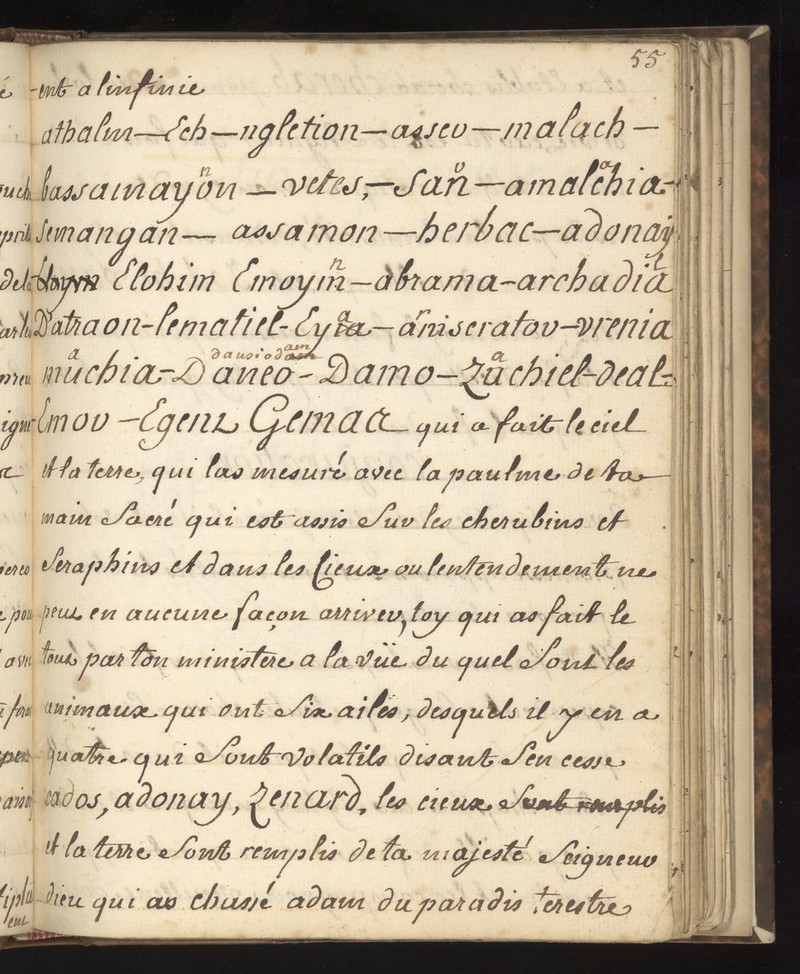 55
ent a linfinie
athalm—Ech—ngletion—asseu—malach—
bassamayon—vetes,—San—amalchia-
Semangan—assamon—herbac—adonay
Eloym Elohim Emoyin—abrama-archadia
Datraon-lematiel-Eyta—aniseratov-vrenia
dausiodam
muchia-Daneo-Damo-Zachiel-deal-
Emov-Egenz Gemaa qui a fait le ciel
et la terre, qui las mesuré avec la paulme de ta
main Sacré qui est assis Sur les cherubins et
Seraphins et dans les Cieux ou lentendement ne
peux en aucune façon arriver, toy qui as fait le
tous par ton ministere a la vüe du quel Sont les
animaux qui ont Six ailes, desquels il y en a
quatre qui Sont volatils disant Sen cesse
cados, adonay, Zenard, les cieux Sont remplis
et la terre Sont remplis de ta majesté Seigneur
dieu qui as chassé adam du paradis terestre